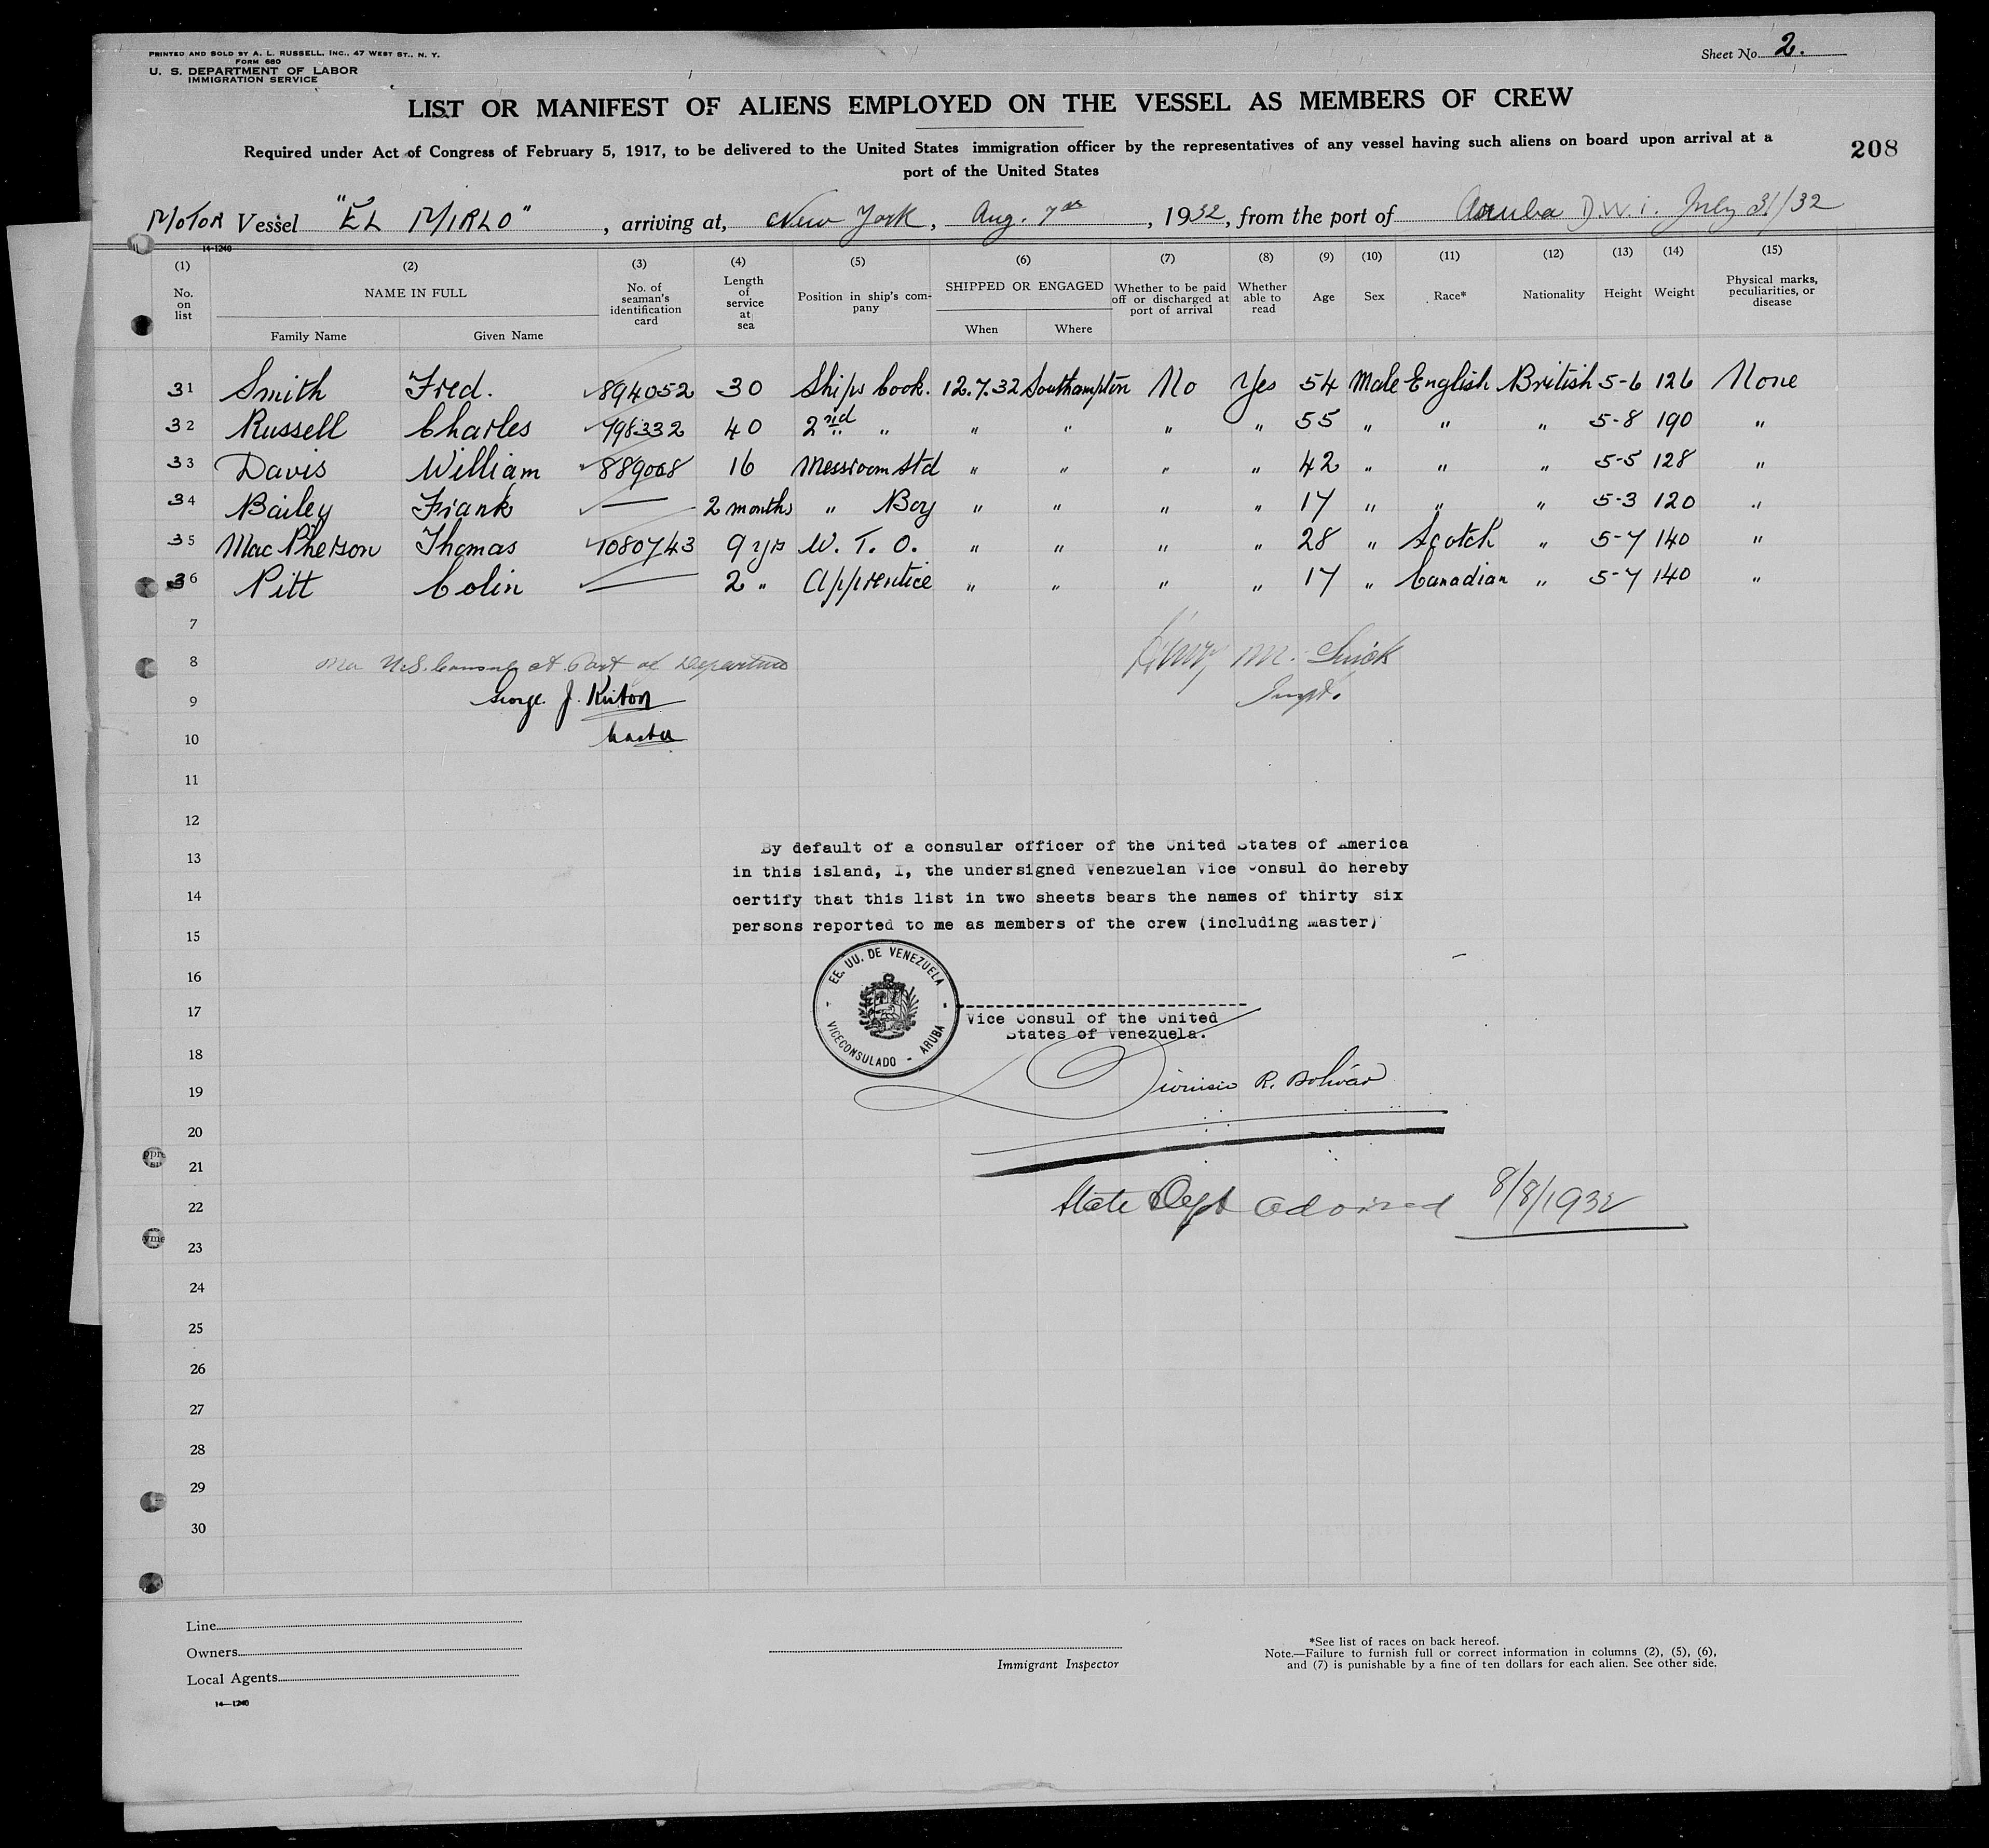 PRINTED AND SOLD BY A. L. RUSSELL, INC., 47 WEST ST., N. Y.
FORM 680
U. S. DEPARTMENT OF LABOR
IMMIGRATION SERVICE
Sheet No. 2.
LIST OR MANIFEST OF ALIENS EMPLOYED ON THE VESSEL AS MEMBERS OF CREW
Required under Act of Congress of February 5, 1917, to be delivered to the United States immigration officer by the representatives of any vessel having such aliens on board upon arrival at a
port of the United States
208
MOTOR Vessel "EL MIRLO", arriving at, New York, Aug. 7th, 1932, from the port of Aruba D.W.I. July 31/32
14-1240
(1) (2) (3) (4) (5) (6) (7) (8) (9) (10) (11) (12) (13) (14) (15)
No. on list NAME IN FULL Family Name Given Name No. of seaman's identification card Length of service at sea Position in ship's company SHIPPED OR ENGAGED When Where Whether to be paid off or discharged at port of arrival Whether able to read Age Sex Race* Nationality Height Weight Physical marks, peculiarities, or disease
31 Smith Fred. 894052 30 Ships Cook. 12.7.32 Southampton No Yes 54 Male English British 5-6 126 None
32 Russell Charles 798332 40 2nd " " " " " 55 " " " 5-8 190 "
33 Davis William 889068 16 Messroom Std " " " " 42 " " " 5-5 128 "
34 Bailey Frank — 2 months " Boy " " " " 17 " " " 5-3 120 "
35 MacPherson Thomas 1080743 9 yrs W. T. O. " " " " 28 " Scotch " 5-7 140 "
36 Pitt Colin — 2 " Apprentice " " " " 17 " Canadian " 5-7 140 "
7
8 U.S. Consul at Port of Departure Henry M.
9 George J. Kirton Inspt.
10 Master
11
12
By default of a consular officer of the United States of America
13
in this island, I, the undersigned Venezuelan Vice Consul do hereby
14 certify that this list in two sheets bears the names of thirty six
persons reported to me as members of the crew (including Master)
15
EE. UU. DE VENEZUELA - VICECONSULADO - ARUBA -
16
17 Vice Consul of the United
States of Venezuela.
18
19 Dionisio R. Bolívar
20
21
22 State Dept advised 8/8/1932
23
24
25
26
27
28
29
30
Line
Owners
Local Agents
14—1240
Immigrant Inspector
*See list of races on back hereof.
Note.—Failure to furnish full or correct information in columns (2), (5), (6),
and (7) is punishable by a fine of ten dollars for each alien. See other side.